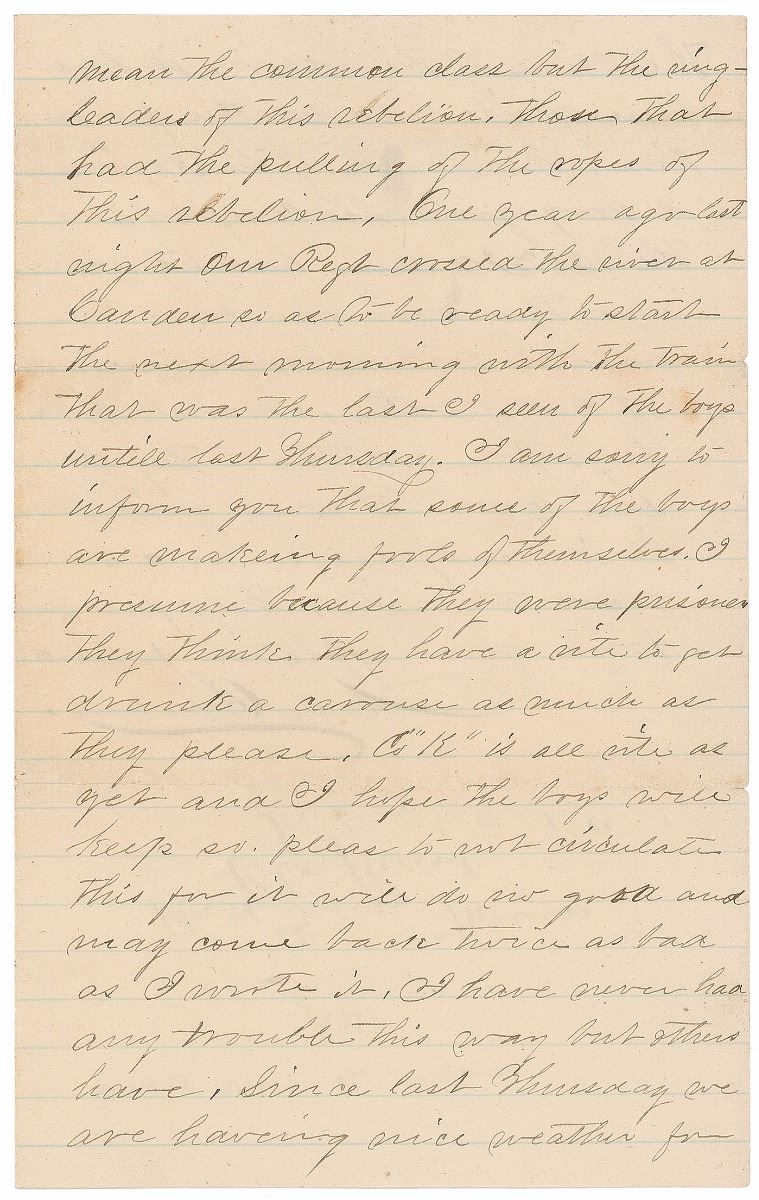 mean the common class but the ring-
leaders of this rebelion, those that
had the pulling of the ropes of
this rebelion, One year ago last
night Our Regt crossed the river at
Camden so as to be ready to start
the next morning with the train
that was the last I seen of the boys
untill last Thursday. I am sorry to
inform you that some of the boys
are makeing fools of themselves. I
presume because they were prisoner
they think they have a rite to get
drunk a carouse as much as
they please, Co "K" is all rite as
yet and I hope the boys will
keep so. pleas to not circulate
this for it will do no good and
may come back twice as bad
as I wrote it, I have never had
any trouble this way but others
have, Since last Thursday we
are haveing nice weather for